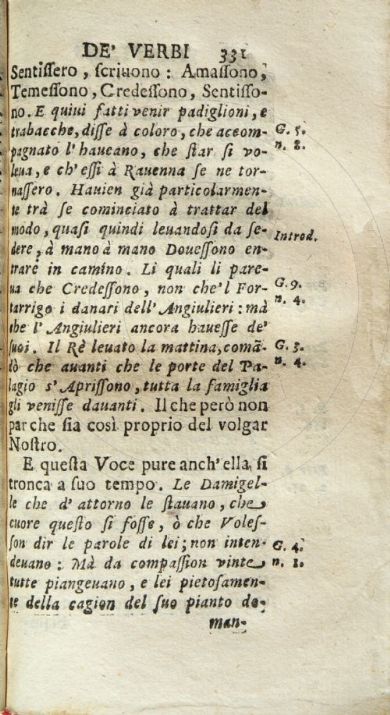 DE' VERBI 331
Sentiſſero, ſcriuono: Amaſſono,
Temeſſono, Credeſſono, Sentiſſo-
no. E quiui fatti venir padiglioni, e
trabacche, diſſe à coloro, che accom- G. 5.
pagnato l'haueano, che ſtar ſi vo- n. 8.
leua, e ch'eſſi à Rauenna ſe ne tor-
naſſero. Hauien già particolarmen-
te trà ſe cominciato à trattar del
modo, quaſi quindi leuandoſi da ſe-
dere, à mano à mano Doueſſono en- Introd.
trare in camino. Li quali li pare-
ua che Credeſſono, non che'l For- G. 9.
tarrigo i danari dell'Angiulieri: mà n. 4.
che l'Angiulieri ancora haueſſe de'
ſuoi. Il Rè leuato la mattina, comā- G. 5.
dò che auanti che le porte del Pa- n. 4.
lagio s'Apriſſono, tutta la famiglia
gli veniſſe dauanti. Il che però non
par che ſia così proprio del volgar
Noſtro.
E queſta Voce pure anch'ella, ſi
tronca a ſuo tempo. Le Damigel-
le che d'attorno le ſtauano, che
cuore queſto ſi foſſe, ò che Voleſ-
ſon dir le parole di lei; non inten- G. 4.
deuano: Mà da compaſſion vinte n. 1.
tutte piangeuano, e lei pietoſamen-
te della cagion del ſuo pianto do-
man-